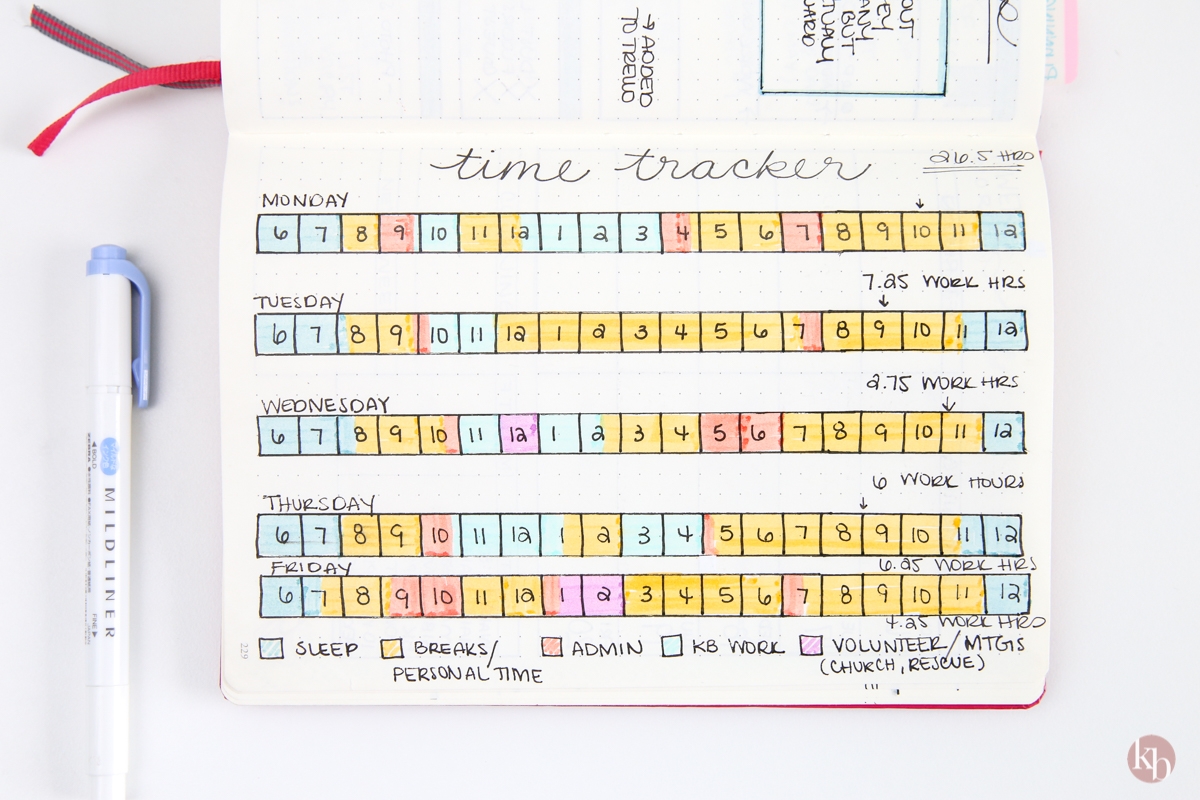 → ADDED
TO TRELLO
OUT
BUT
time tracker
26.5 HRS
MONDAY
↓
6 7 8 9 10 11 12 1 2 3 4 5 6 7 8 9 10 11 12
7.25 WORK HRS
TUESDAY
↓
6 7 8 9 10 11 12 1 2 3 4 5 6 7 8 9 10 11 12
2.75 WORK HRS
WEDNESDAY
↓
6 7 8 9 10 11 12 1 2 3 4 5 6 7 8 9 10 11 12
6 WORK HOURS
THURSDAY
↓
6 7 8 9 10 11 12 1 2 3 4 5 6 7 8 9 10 11 12
FRIDAY
6.25 WORK HRS
6 7 8 9 10 11 12 1 2 3 4 5 6 7 8 9 10 11 12
4.25 WORK HRS
SLEEP BREAKS/ ADMIN KB WORK VOLUNTEER/MTGS
PERSONAL TIME (CHURCH, RESCUE)
229
BOLD
MILDLINER
FINE
kb